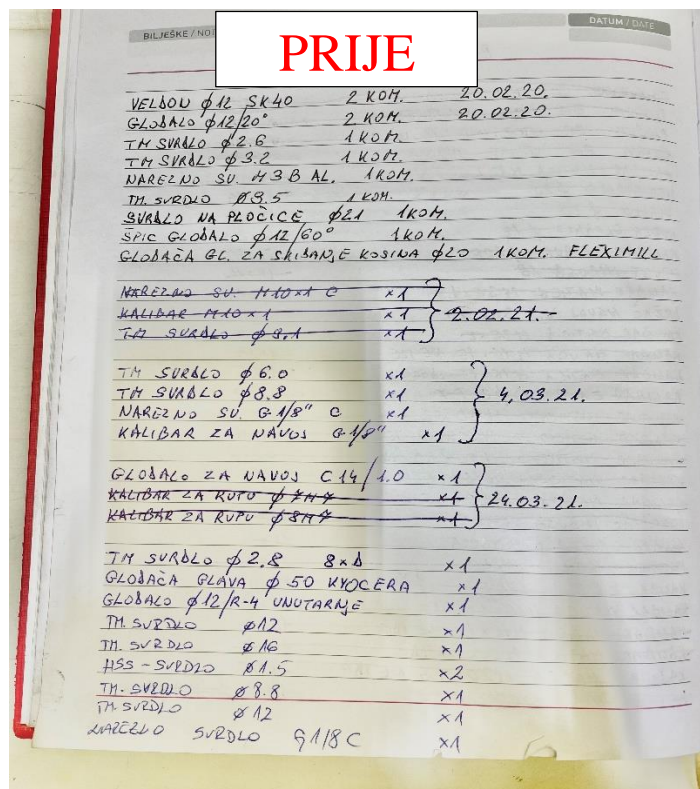 BILJEŠKE / NO
DATUM / DATE
PRIJE
VELDON φ12 SK40 2 KOM. 20.02.20.
GLODALO φ12/20° 2 KOM. 20.02.20.
TM SVRDLO φ2.6 1 KOM.
TM SVRDLO φ3.2 1 KOM.
NAREZNO SV. M3 B AL. 1 KOM.
TM. SVRDLO φ9.5 1 KOM.
SVRDLO NA PLOČICE φ21 1 KOM.
ŠPIC GLODALO φ12/60° 1 KOM.
GLODAČA GL. ZA SKIDANJE KOSINA φ20 1 KOM. FLEXIMILL
NAREZNO SV. M10x1 C x1
KALIBAR M10x1 x1 2.02.21.
TM SVRDLO φ9.1 x1
TM SVRDLO φ6.0 x1
TM SVRDLO φ8.8 x1 4.03.21.
NAREZNO SV. G1/8" C x1
KALIBAR ZA NAVOJ G1/8" x1
GLODALO ZA NAVOJ C14/1.0 x1
KALIBAR ZA RUPU φ7H7 x1 24.03.21.
KALIBAR ZA RUPU φ8H7 x1
TM SVRDLO φ2.8 8xD x1
GLODAČA GLAVA φ50 KYOCERA x1
GLODALO φ12/R-4 UNUTARNJE x1
TM. SVRDLO φ12 x1
TM. SVRDLO φ16 x1
HSS-SVRDLO φ1.5 x2
TM. SVRDLO φ8.8 x1
TM. SVRDLO φ12 x1
NAREZNO SVRDLO G1/8 C x1